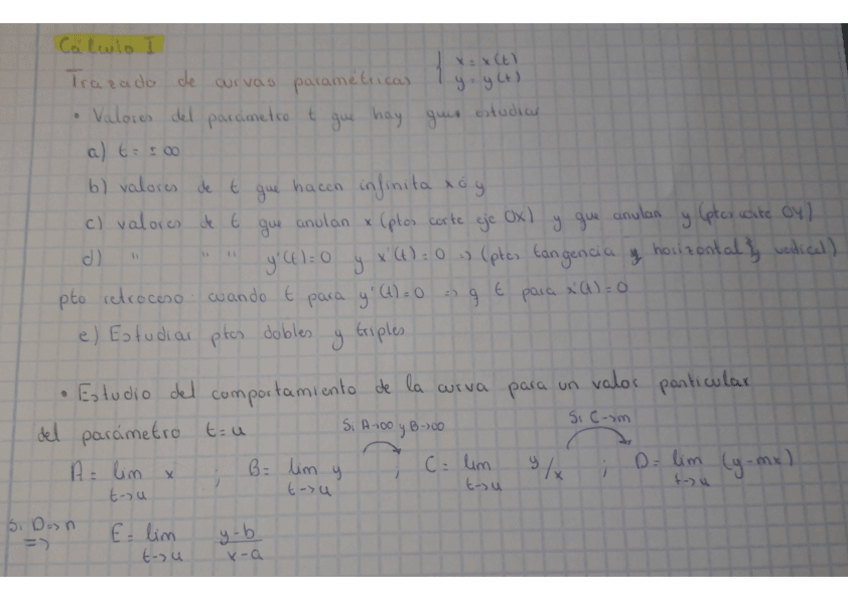 Cálculo I
Trazado de curvas paramétricas { x = x(t)
y = y(t)
• Valores del parámetro t que hay que estudiar
a) t = ± ∞
b) valores de t que hacen infinita x ó y
c) valores de t que anulan x (ptos corte eje OX) y que anulan y (ptos corte OY)
d) " " " y'(t)=0 y x'(t)=0 => (ptos tangencia horizontal y vertical)
pto retroceso: cuando t para y'(t)=0 => t para x'(t)=0
e) Estudiar ptos dobles y triples
• Estudio del comportamiento de la curva para un valor particular
del parámetro t=u Si A→∞ y B→∞ Si C→m
A = lim t→u x ; B = lim t→u y ; C = lim t→u y/x ; D = lim t→u (y-mx)
Si D→n => E = lim t→u (y-b)/(x-a)